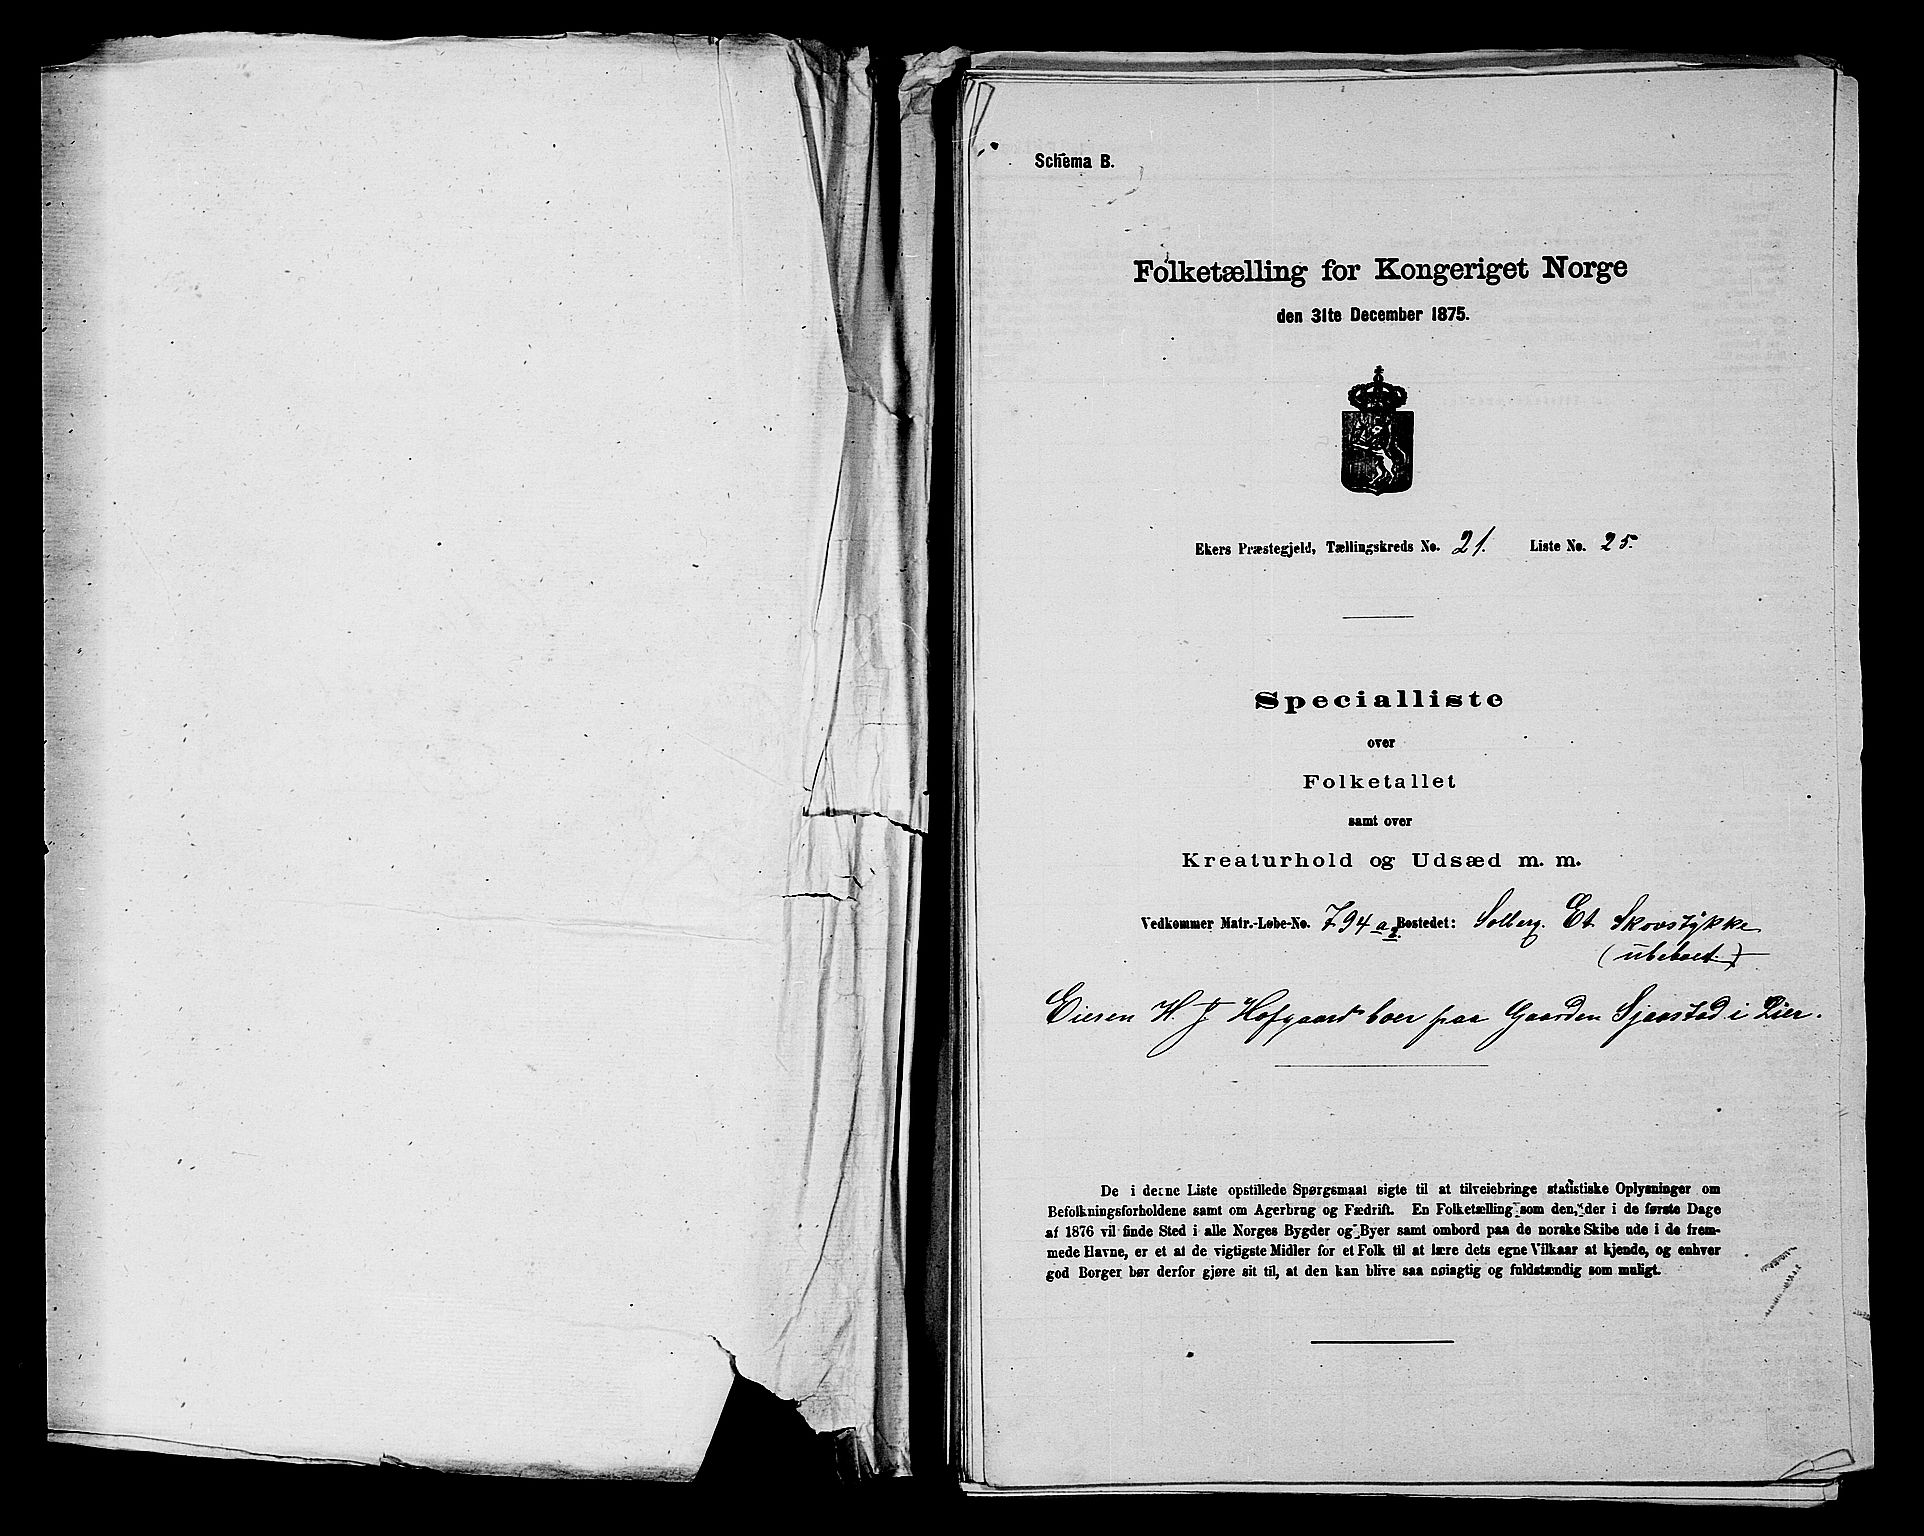 Schema B.
Folketælling for Kongeriget Norge
den 31te December 1875.
Ekers Præstegjeld, Tællingskreds No. 21. Liste No. 25.
Specialliste
over
Folketallet
samt over
Kreaturhold og Udsæd m. m.
Vedkommer Matr.-Løbe-No. 794 a Bostedet: Solberg. Et Skovstykke
(ubeboet.)
Eieren H. J. Hofgaard boer paa Gaarden Sjaastad i Lier.
De i denne Liste opstillede Spørgsmaal sigte til at tilveiebringe statistiske Oplysninger om
Befolkningsforholdene samt om Agerbrug og Fædrift. En Folketælling som den, der i de første Dage
af 1876 vil finde Sted i alle Norges Bygder og Byer samt ombord paa de norske Skibe ude i de frem-
mede Havne, er et af de vigtigste Midler for et Folk til at lære dets egne Vilkaar at kjende, og enhver
god Borger bør derfor gjøre sit til, at den kan blive saa nøiagtig og fuldstændig som muligt.